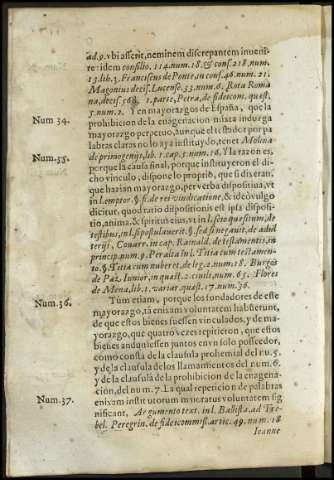 ad. 9. vbi asserit, neminem discrepantem inueni-
re: idem consilio. 114. num. 18. & cons. 218. num.
13. lib. 3. Franciscus de Ponte, in cons. 46. num. 21.
Magonius decis. Lucense. 33. num. 6. Rota Roma
na, decis. 568. 1. parte, Petra, de fideicom. quæst.
5. num. 2. Y en mayorazgos de España, que la
Num 34. prohibicion de la enagenacion misma indurga
mayorazgo perpetuo, aunque el testador por pa
labras claras no lo aya instituydo, tenet Molina
Num. 35. de primogenijs, lib. 1. cap. 5. num. 16. Y la razon es,
porque la causa final, porque instituyeron el di-
cho vinculo, dispone lo proprio, que si dixeran,
que hazian mayorazgo, per verba dispositiua, vt
in l. emptor. §. fi. de rei vindicatione, & ideò vulgo
dicitur, quod ratio dispositionis est ipsa disposi-
tio, anima, & spiritus eius, vt in l. scio quæsitum, de
testibus, in l. si postulauerit. §. sed si negauit, de adul
terijs, Couarr. in cap. Rainald. de testamentis, in
princip. num. 9. Peralta in l. Titia cum testamen-
to. §. Titia cum nuberet, de leg. 2. num. 18. Burgos
de Paz. Iunior, in quæst. 2. ciuili, num. 65. Flores
de Mena, lib. 1. variar. quæst. 17. num. 36.
Num. 36. Tùm etiam, porque los fundadores de este
mayorazgo, tà enixam voluntatem habuerunt,
de que estos bienes fuessen vinculados, y de ma-
yorazgo, que quatro vezes repitieron, que estos
bienes anduuiessen juntos en vn solo posseedor,
como consta de la clausula prohemial del nu. 5.
y de la clausula de los llamamientos del num. 6.
y de la clausula de la prohibicion de la enagena-
cion, del num. 7. La qual repeticion de palabras
Num. 37. enixam institutorum maioratus voluntatem sig
nificant, Argumento text. in l. Ballista, ad Tre-
bel. Peregrin. de fideicommiss. artic. 49. num. 18
Ioanne